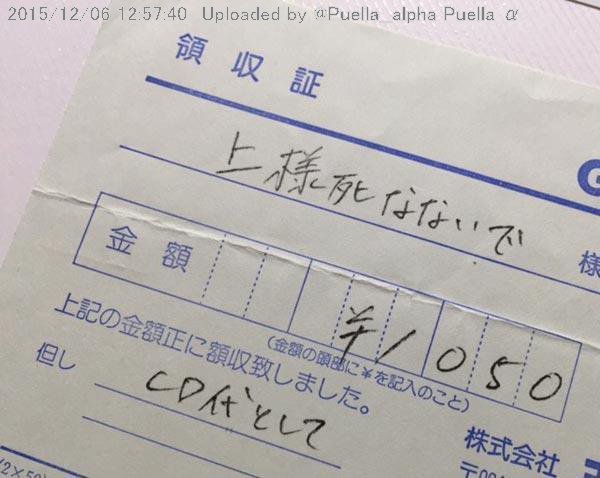 2015/12/06 12:57:40 Uploaded by @Puella_alpha Puella α
領収証
上様死なないで 様
金額 ¥1050
(金額の頭部に¥を記入のこと)
上記の金額正に領収致しました。
但し CD代として
株式会社